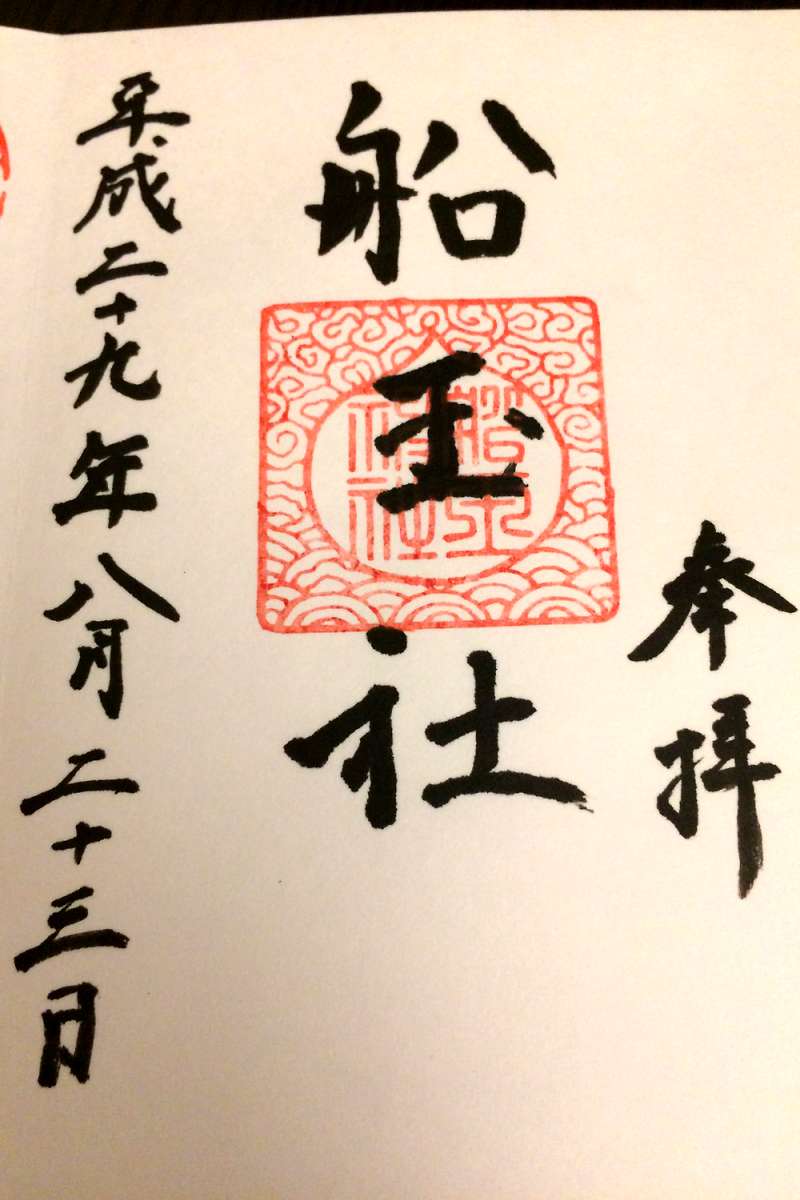 奉拝
船玉社
船玉
神社
平成二十九年八月二十三日